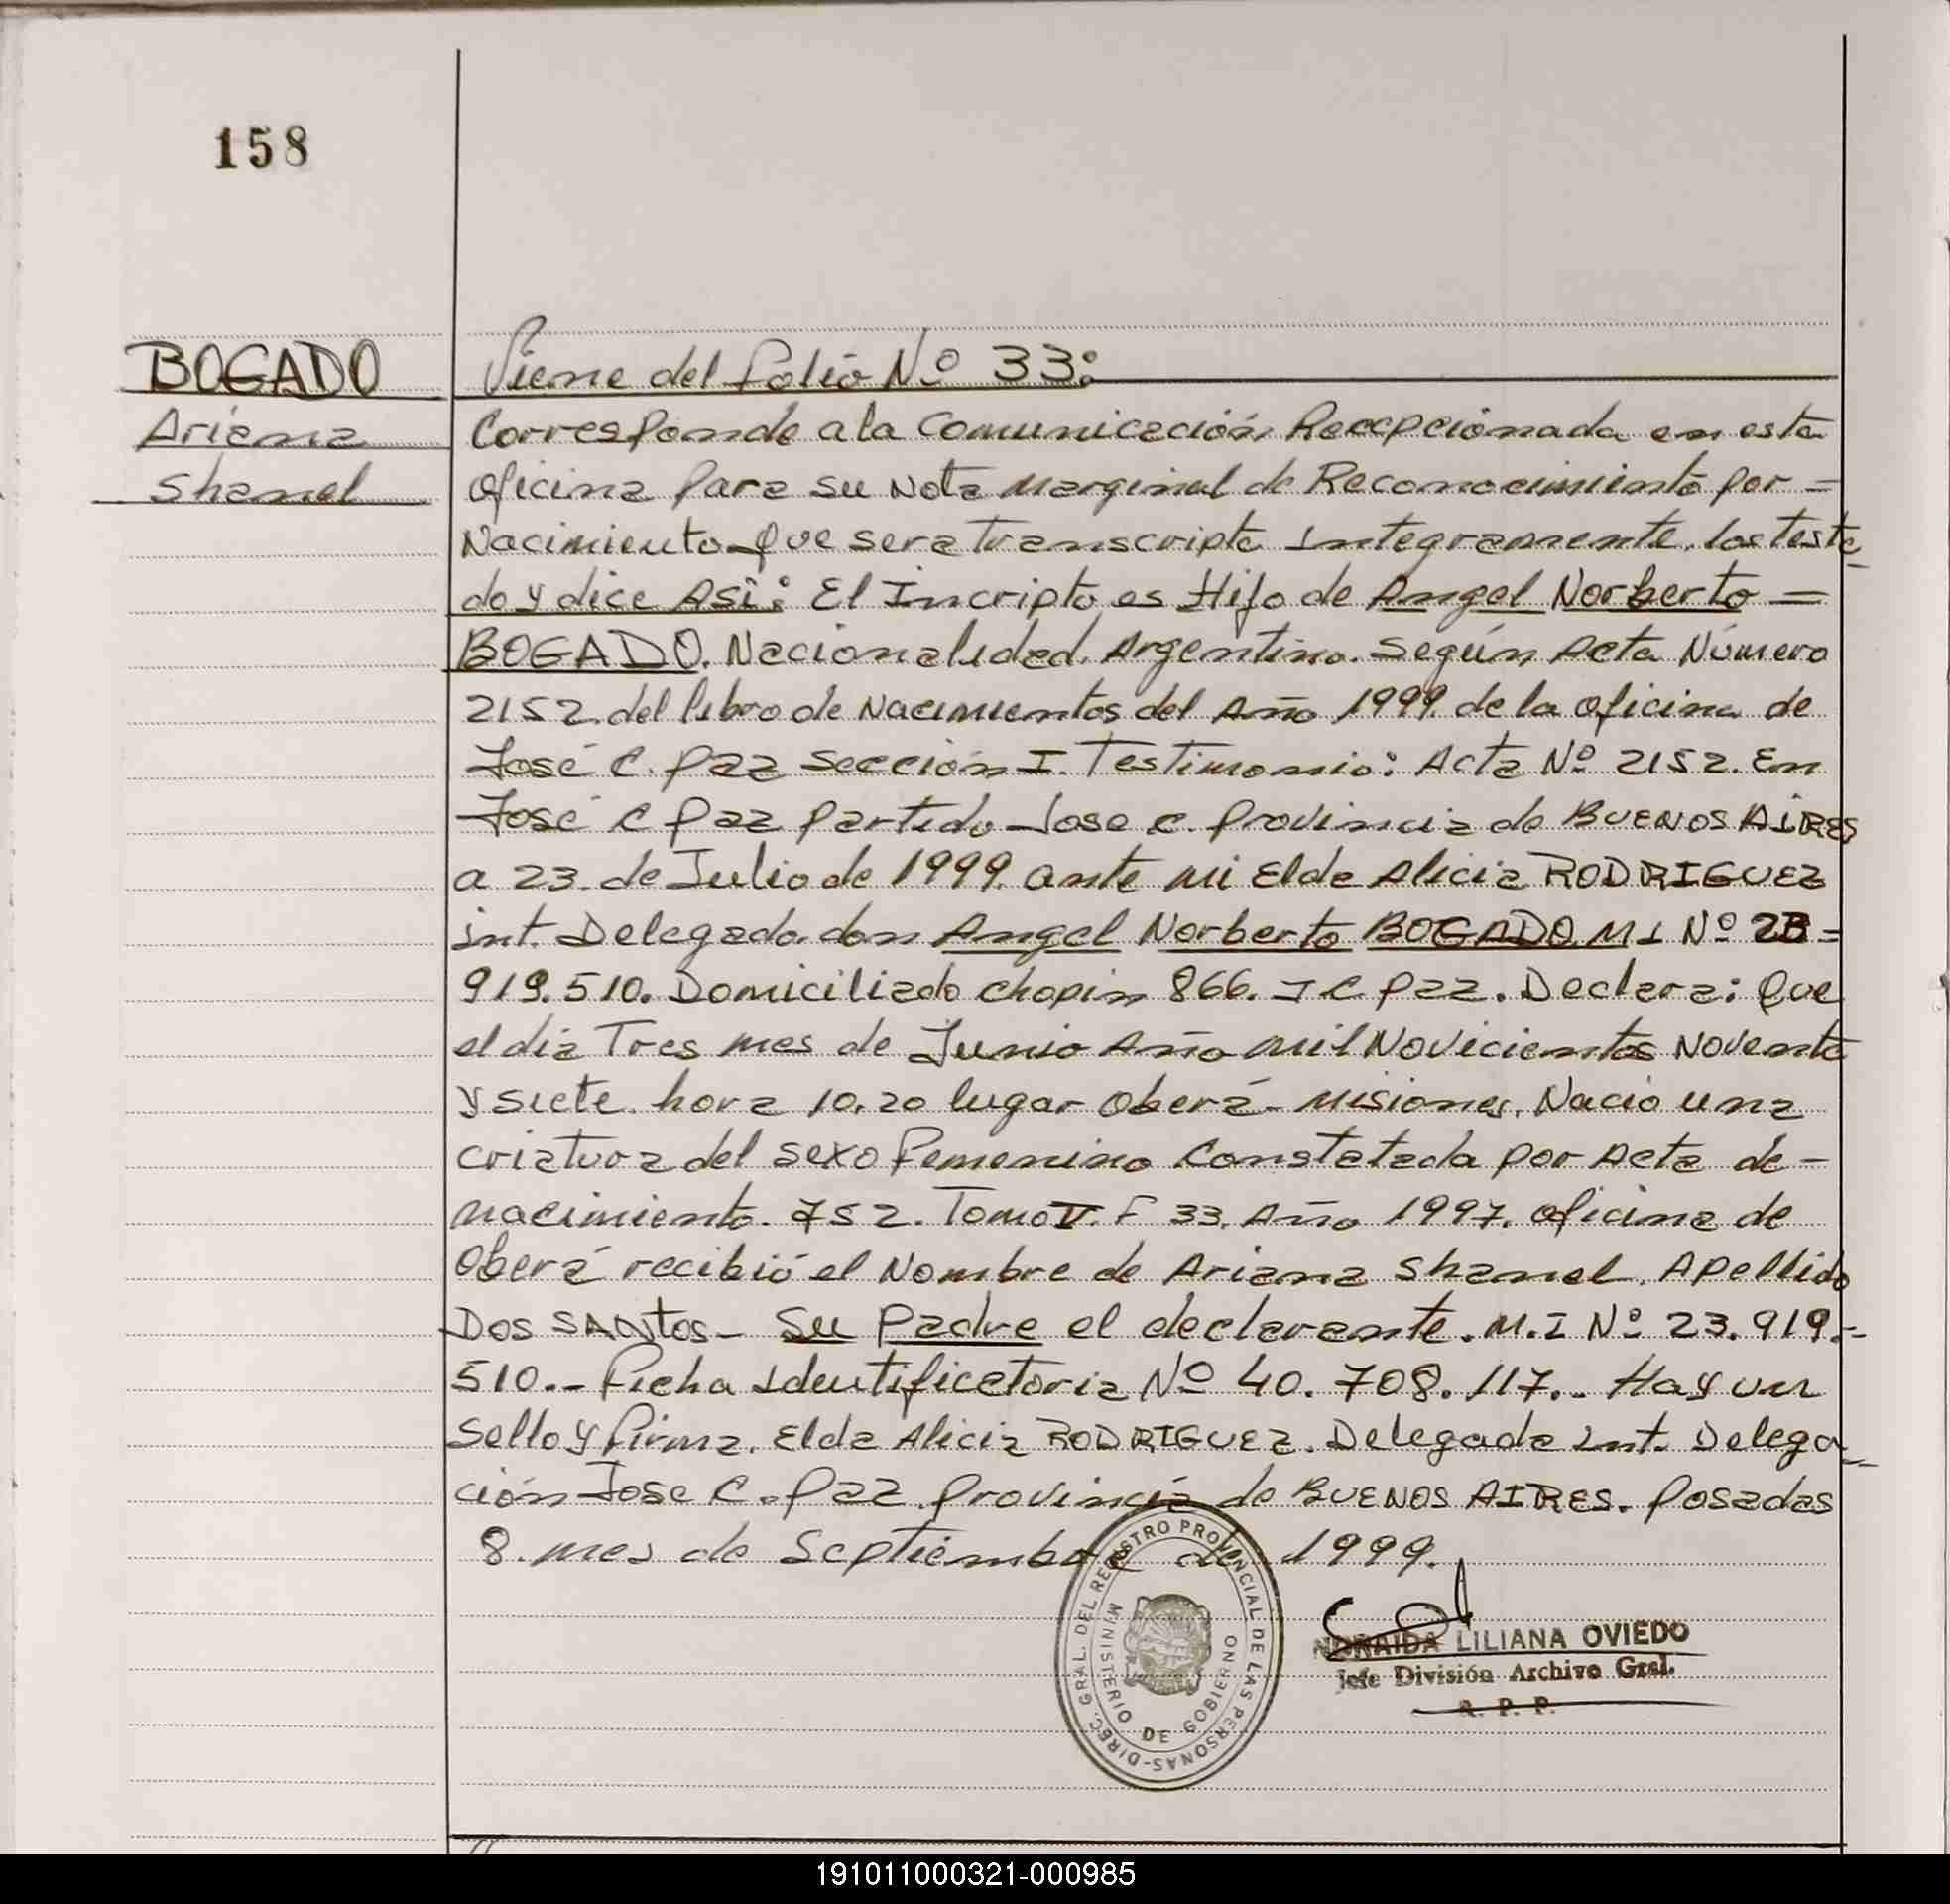 158
BOGADO
Ariana
Shanel
Viene del folio Nº 33:
Corresponde a la Comunicación Recepcionada en esta
oficina para su Nota Marginal de Reconocimiento por =
Nacimiento que sera Transcripta Integramente. los testa
do y dice ASí: El Incripto es Hijo de Angel Norberto =
BOGADO. Nacionalidad. Argentino. Según Acta Número
2152 del libro de Nacimientos del Año 1999. de la oficina de
José C. Paz Sección I. Testimonio: Acta Nº 2152. En
José C Paz Partido Jose C. Provincia de BUENOS AIRES
a 23 de Julio de 1999. ante mi Elda Alicia RODRIGUEZ
int. Delegada don Angel Norberto BOGADO MI Nº 23 =
919.510. Domiciliado Chopin 866. J C Paz. Declara: Que
el dia Tres mes de Junio Año Mil Novicientos Noventa
y siete. hora 10.20 lugar Oberá - Misiones. Nacio una
criatura del sexo Femenino Constatada por Acta de -
nacimiento. 752. Tomo V. F 33. Año 1997. oficina de
Oberá recibió el Nombre de Ariana Shanel. Apellido
DOS SANtos - Su Padre el declarante. M.I Nº 23.919.-
510.- Ficha Identificatoria Nº 40.708.117.. Hay un
Sello y firma. Elda Alicia RODRIGUEZ. Delegada Int. Delega
ción Jose C. Paz Provincia de BUENOS AIRES. Posadas
8. mes de Septiembre de 1999.
DIREC. GRAL. DEL REGISTRO PROVINCIAL DE LAS PERSONAS-
MINISTERIO DE GOBIERNO
NORAIDA LILIANA OVIEDO
Jefe División Archivo Gral.
R. P. P.
191011000321-000985